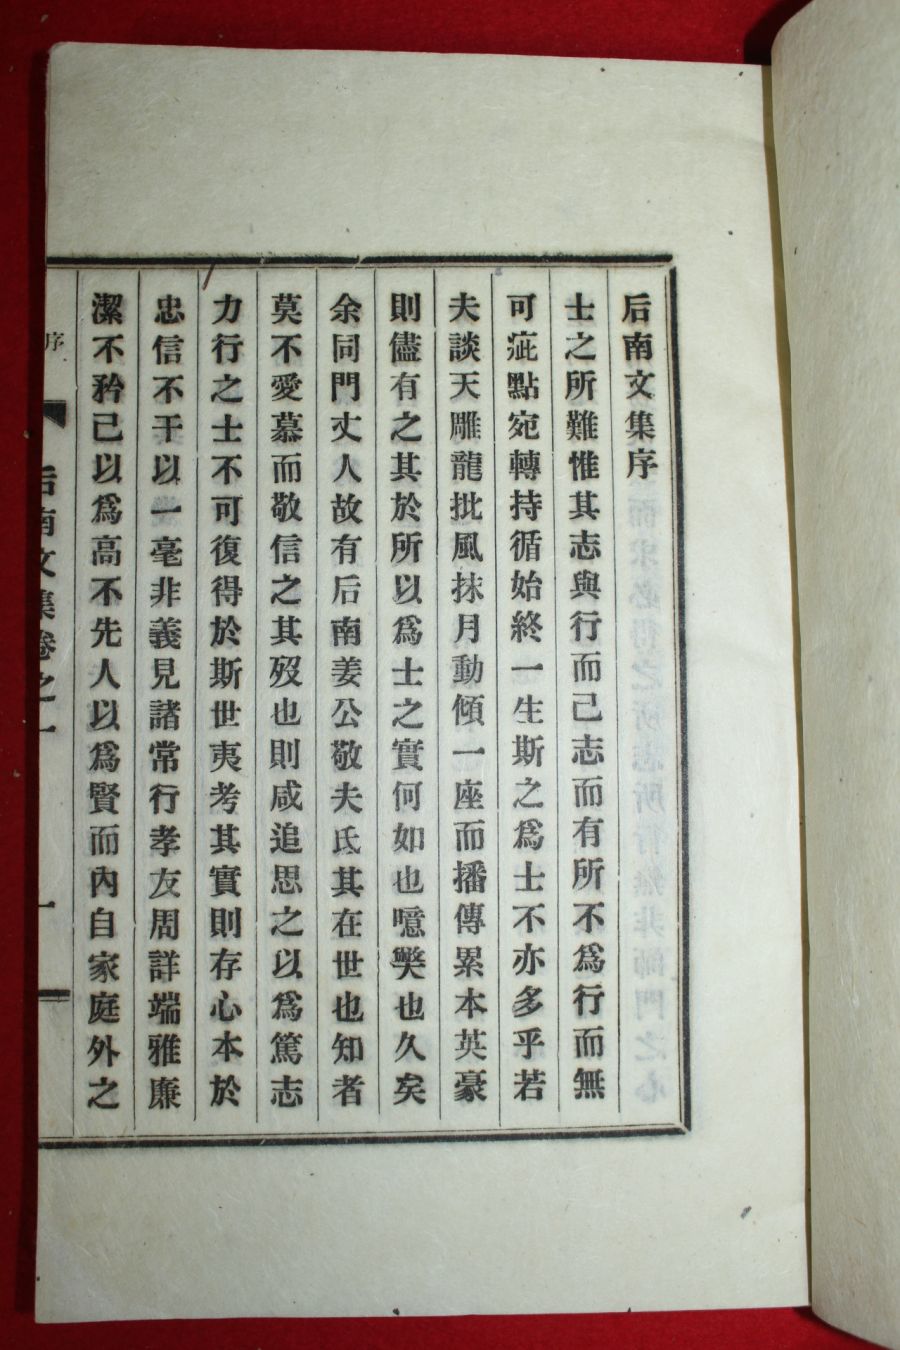 后南文集序
士之所難惟其志與行而己志而有所不爲行而無
可疵點宛轉持循始終一生斯之爲士不亦多乎若
夫談天雕龍批風抹月動傾一座而播傳累本英豪
則儘有之其於所以爲士之實何如也噫樊也久矣
余同門丈人故有后南姜公敬夫氏其在世也知者
莫不愛慕而敬信之其歿也則咸追思之以爲篤志
力行之士不可復得於斯世夷考其實則存心本於
忠信不干以一毫非義見諸常行孝友周詳端雅廉
潔不矜己以爲高不先人以爲賢而內自家庭外之
序
后南文集卷之一
一